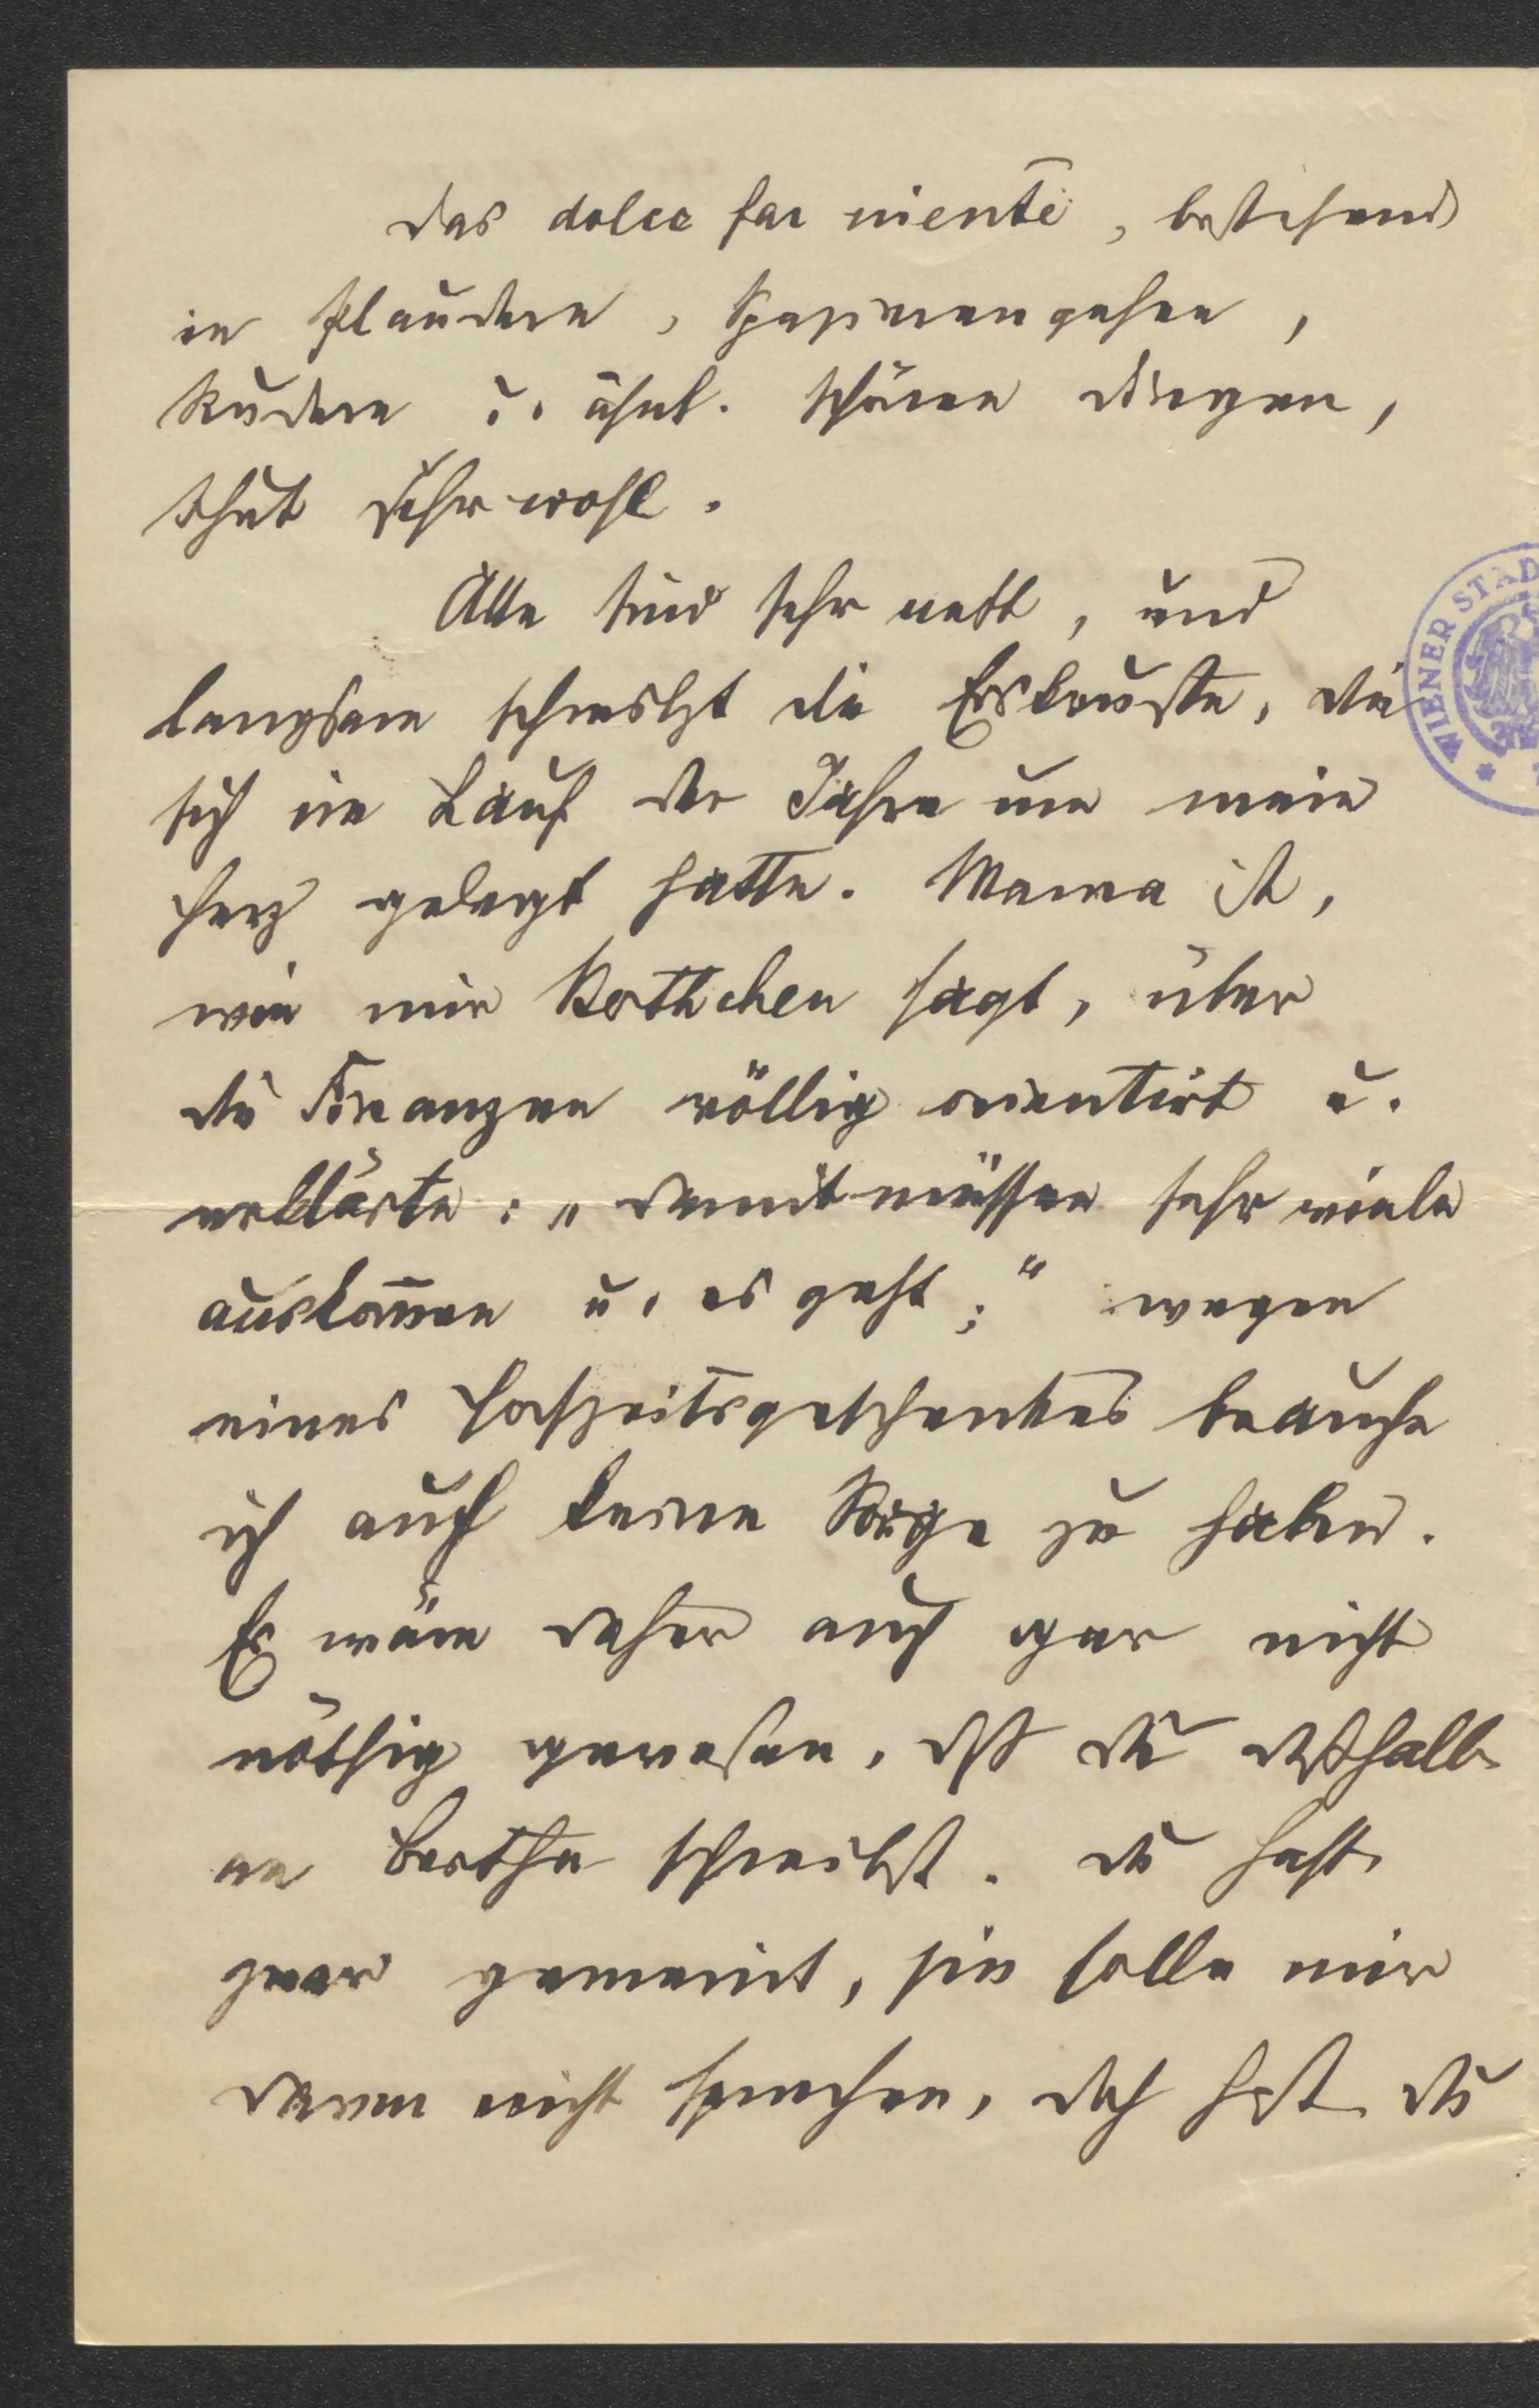 Das dolce far niente, bestehend
in Plaudern, Spazierengehen,
Rudern u. ähnl. schönen Dingen,
thut sehr wohl.
Alle sind sehr nett, und
langsam schmilzt die Eiskruste, die
sich im Lauf der Jahre um mein
Herz gelegt hatte. Mama ist,
wie mir sagt, über
die Finanzen völlig orientirt u.
erklärte: „damit müssen sehr viele
auskom̄en u. es geht;“ wegen
eines Hochzeitsgeschenkes brauche
ich auch keine Sorge zu haben.
Es wäre daher auch gar nicht
nöthig gewesen, dß Du deßhalb
an Bertha schreibst. Du hast
zwar gemeint, sie solle mir
davon nicht sprechen, doch hast Du
WIENER STAD